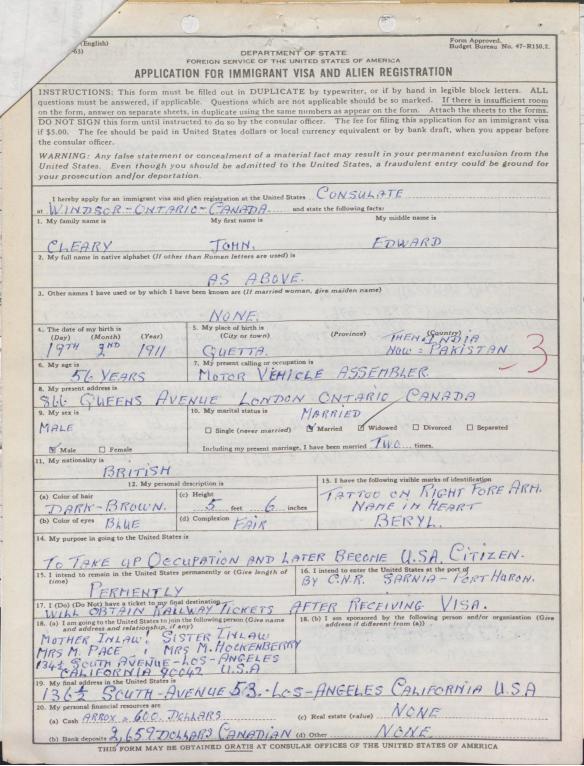 (English)
-63)
Form Approved.
Budget Bureau No. 47-R150.2.
DEPARTMENT OF STATE
FOREIGN SERVICE OF THE UNITED STATES OF AMERICA
APPLICATION FOR IMMIGRANT VISA AND ALIEN REGISTRATION
INSTRUCTIONS: This form must be filled out in DUPLICATE by typewriter, or if by hand in legible block letters. ALL
questions must be answered, if applicable. Questions which are not applicable should be so marked. If there is insufficient room
on the form, answer on separate sheets, in duplicate using the same numbers as appear on the form. Attach the sheets to the forms.
DO NOT SIGN this form until instructed to do so by the consular officer. The fee for filing this application for an immigrant visa
if $5.00. The fee should be paid in United States dollars or local currency equivalent or by bank draft, when you appear before
the consular officer.
WARNING: Any false statement or concealment of a material fact may result in your permanent exclusion from the
United States. Even though you should be admitted to the United States, a fraudulent entry could be ground for
your prosecution and/or deportation.
I hereby apply for an immigrant visa and alien registration at the United States CONSULATE
at WINDSOR-ONTARIO-CANADA and state the following facts:
1. My family name is My first name is My middle name is
CLEARY JOHN. EDWARD
2. My full name in native alphabet (If other than Roman letters are used) is
AS ABOVE.
3. Other names I have used or by which I have been known are (If married woman, give maiden name)
NONE.
4. The date of my birth is 5. My place of birth is
(Day) (Month) (Year) (City or town) (Province) (Country)
THEN: INDIA
19TH 2ND 1911 QUETTA. NOW: PAKISTAN 3
6. My age is 7. My present calling or occupation is
56 YEARS MOTOR VEHICLE ASSEMBLER
8. My present address is
866 QUEENS AVENUE LONDON ONTARIO CANADA
9. My sex is 10. My marital status is MARRIED
MALE Single (never married) Married Widowed Divorced Separated
Male Female Including my present marriage, I have been married TWO times.
11. My nationality is
BRITISH
12. My personal description is 13. I have the following visible marks of identification
(a) Color of hair (c) Height TATTOO ON RIGHT FORE ARM.
DARK-BROWN. 5 feet 6 inches NAME IN HEART
(b) Color of eyes BLUE (d) Complexion FAIR BERYL.
14. My purpose in going to the United States is
TO TAKE UP OCCUPATION AND LATER BECOME U.S.A. CITIZEN.
15. I intend to remain in the United States permanently or (Give length of
time) PERMENTLY
16. I intend to enter the United States at the port of
BY C.N.R. SARNIA-PORT HURON.
17. I (Do) (Do Not) have a ticket to my final destination
WILL OBTAIN RAILWAY TICKETS AFTER RECEIVING VISA.
18. (a) I am going to the United States to join the following person (Give name
and address and relationship, if any)
MOTHER INLAW: SISTER INLAW
MRS M. PACE : MRS M. HOCKENBERRY
SOUTH AVENUE-LOS-ANGELES
CALIFORNIA 90042 U.S.A
18. (b) I am sponsored by the following person and/or organization (Give
address if different from (a))
19. My final address in the United States is
136½ SOUTH-AVENUE 53.-LOS-ANGELES CALIFORNIA U.S.A
20. My personal financial resources are
(a) Cash ARROX = 600. DOLLARS (c) Real estate (value) NONE
(b) Bank deposits 2,659 DOLLARS CANADIAN (d) Other NONE.
THIS FORM MAY BE OBTAINED GRATIS AT CONSULAR OFFICES OF THE UNITED STATES OF AMERICA